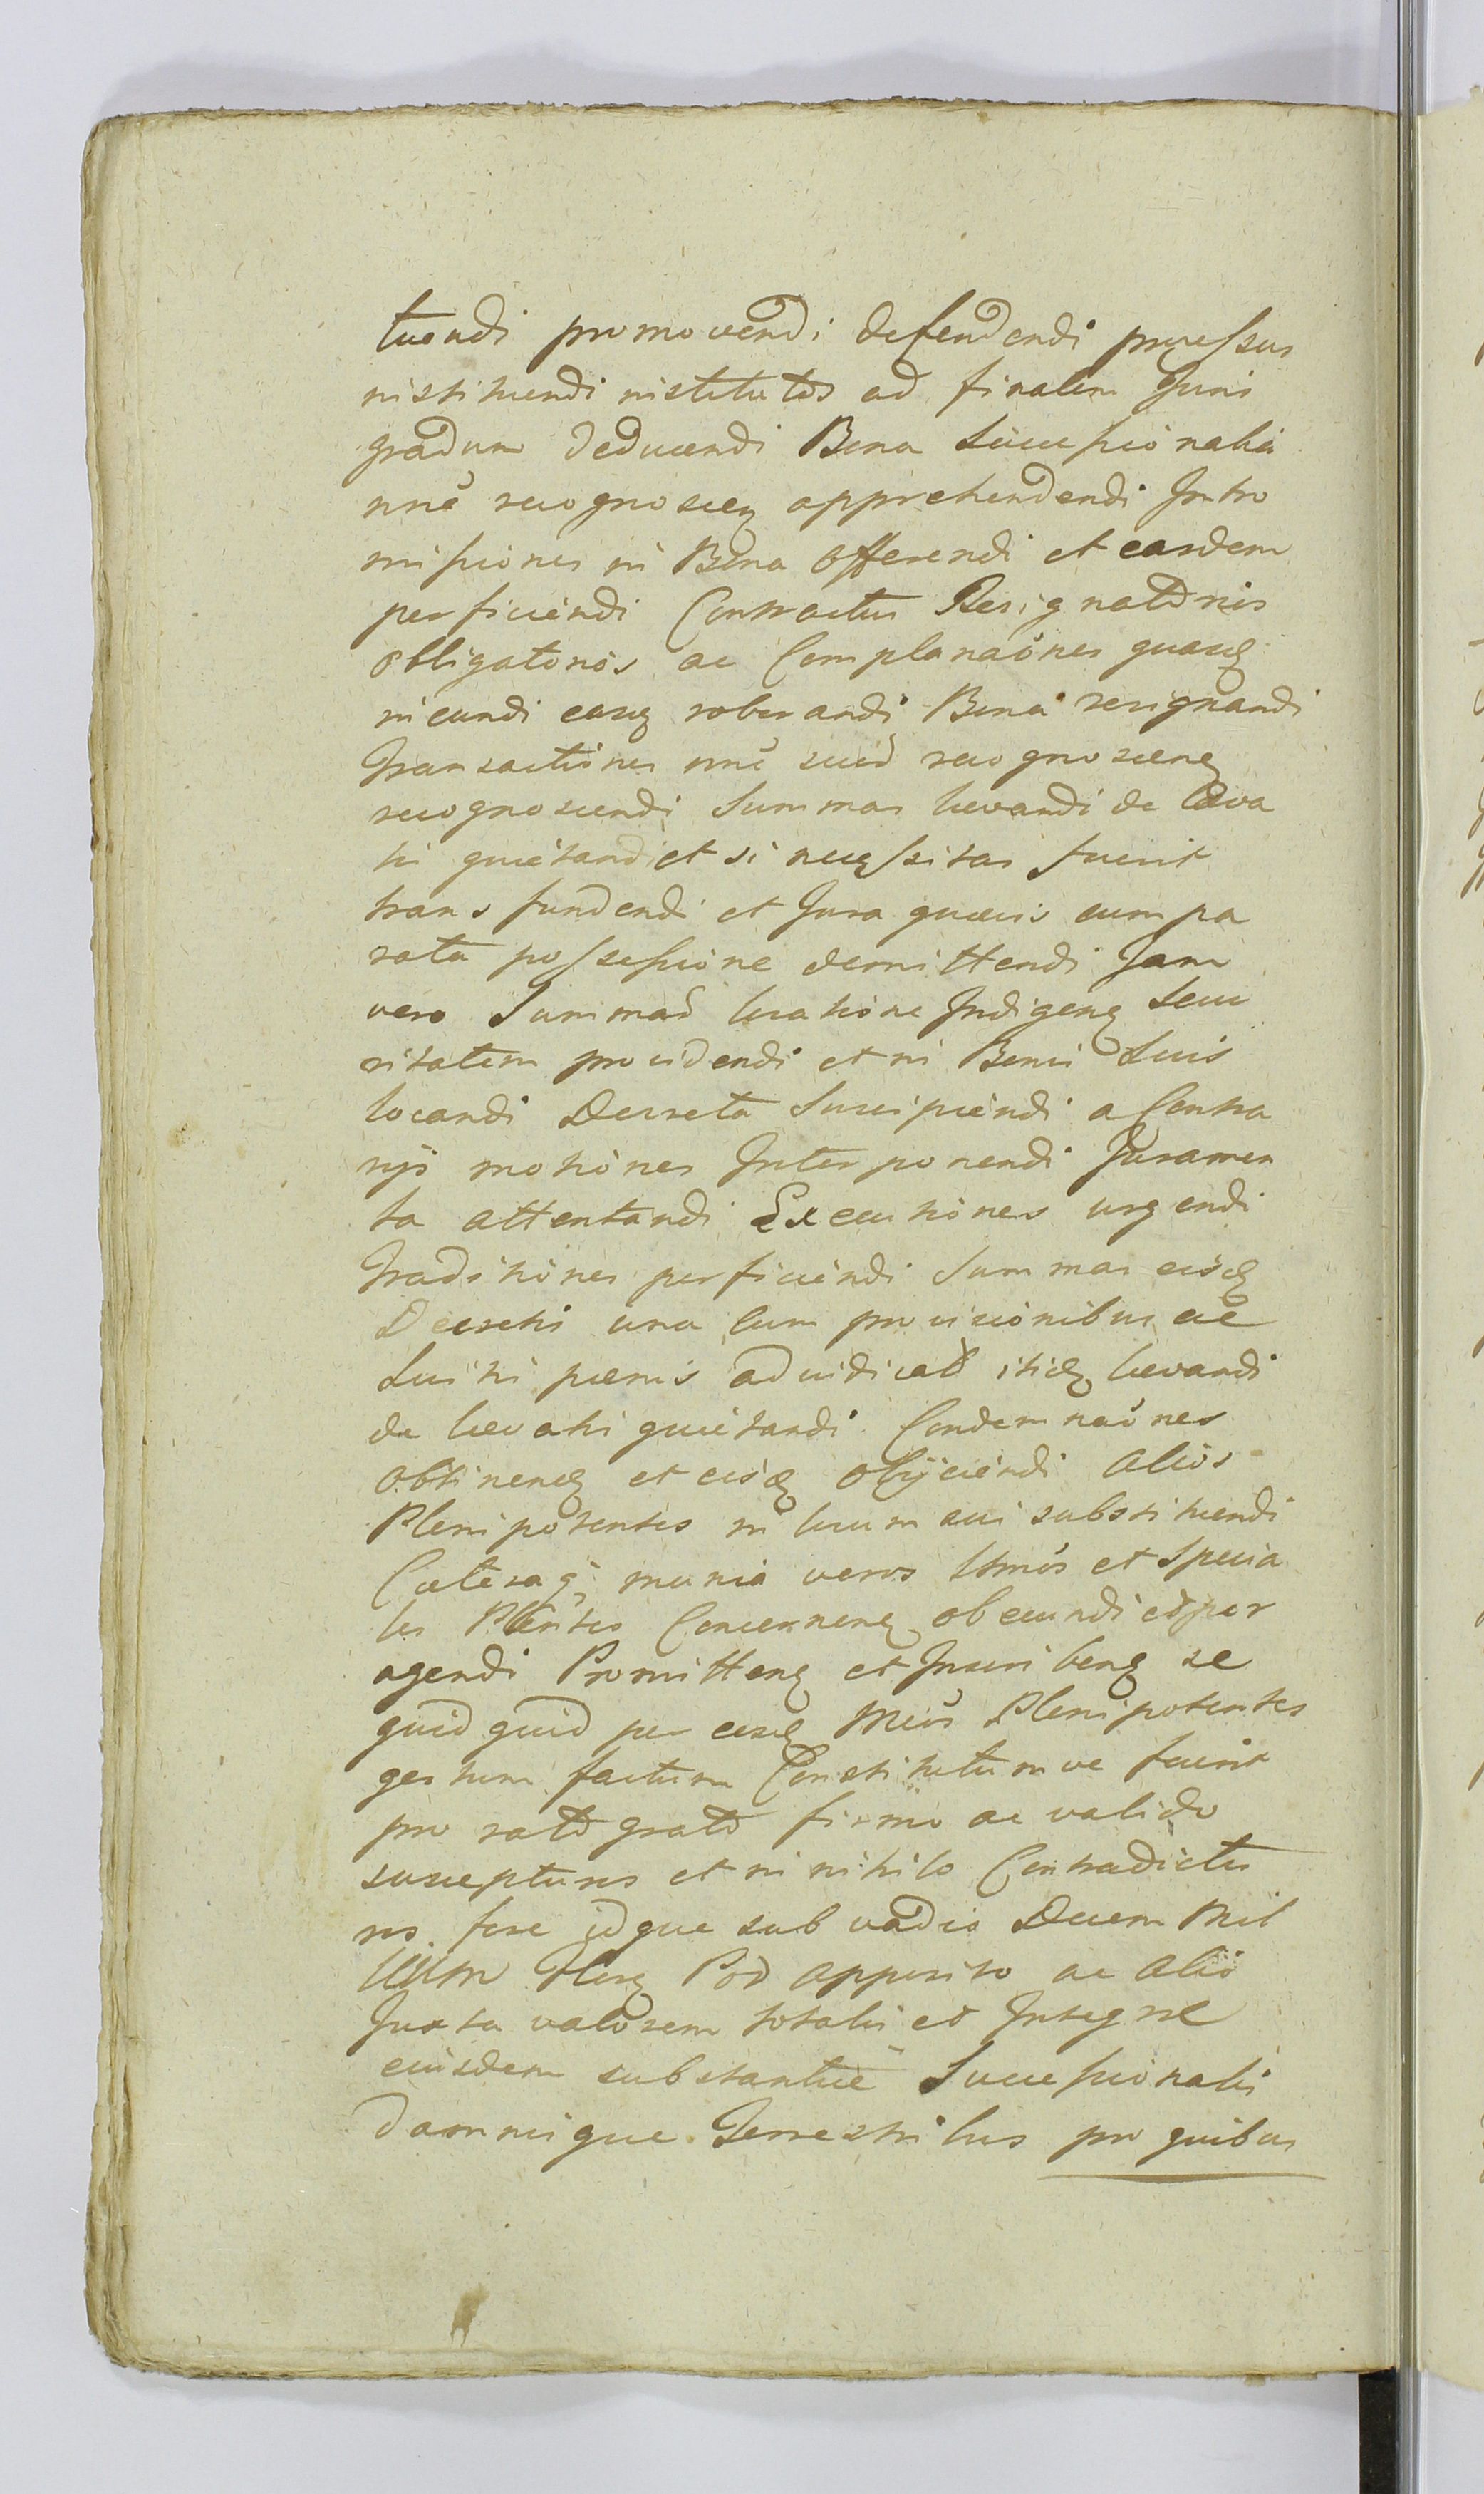 tuendi promovendi defendendi processus
instituendi institutos ad finalem Juris
gradum deducendi Bona Successionalia
nne recognoscen apprehendendi Intro
missiones in Bona offerendi et easdem
perficiendi Contractus Resignatōnis
obligatōnis ac Complanaōnes quascq
ineundi easq roborandi Bona resignandi
Transactiones nne recognoscenq
recognoscendi Summas levandi de leva
tis quietandi et si necessitas fuerit
transfundendi et Jura quaevis cum pa
rata possessione demittendi Jam
vero Summas Indigenq Secu
ritatem providendi et in Bonis Suis
locandi Decreta Suscipiendi a Contra
rijs motiones Interponendi Juramen
ta attentandi Executiones urgendi
Traditiones perficiendi Summas eisdq
Decretis una cum provisionibus ac
Luitis poenis adiudicat itidq levandi
de levatis quietandi Condemnaōnes
obtinendq et eisdq obijciendi alios
Plenipotentes in locum sui substituendi
Caeteraq munia veros Ltmos et Specia
les Plentes Concernenq obeundi et per
agendi Promittenq et Inscribenq se
quid quid per eosdq Mcos Plenipotentes
gestum factum Constitutum ve fuerit
pro rato grato firmo ac valido
suscepturos et in nihilo Contradictu
ros fore idque sub vadio Decem Mil
lium Florq Pol apposito ac alio
Juxta valorem totalis et Integrae
eiusdem substantiae Successionalis
damnisque Terrestribus pro quibus